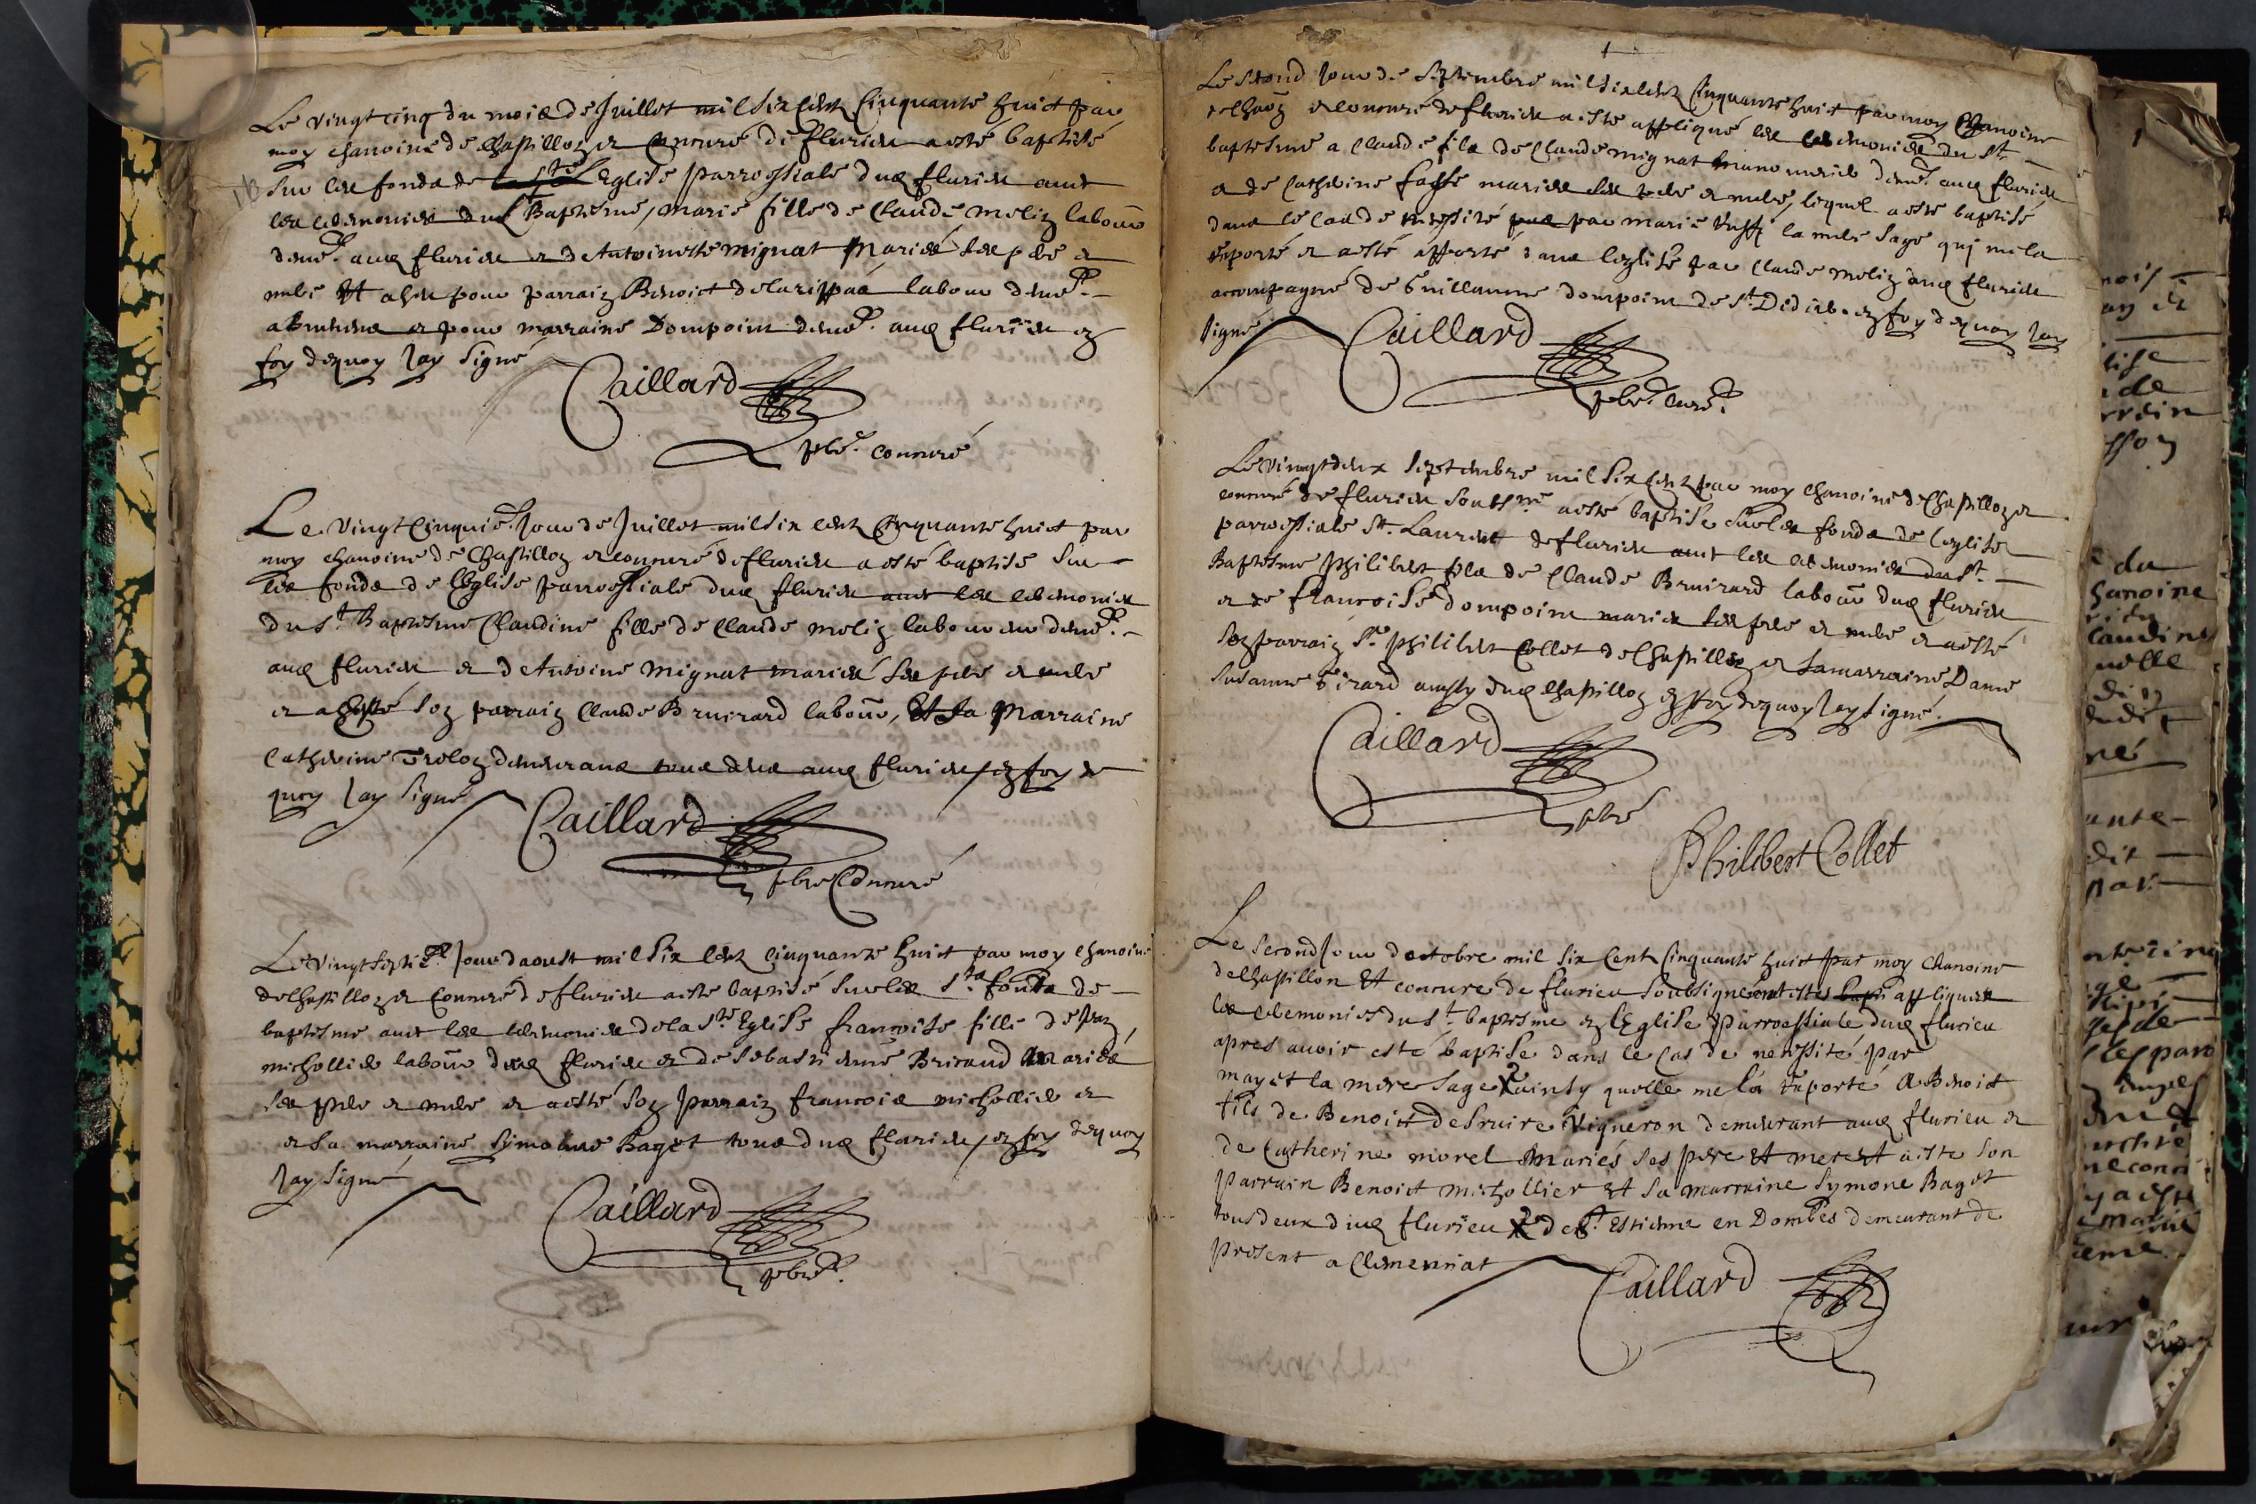 Le vingt cinq du mois de Juillet mil six cent Cinquante huict par
moy chanoine de Chastillon et Concuré de flurieu a esté baptisé
sur les fonds de l'Eglise parrossiale dud flurieu avec
les ceremonies du St Baptesme, Marie fille de Claude meliz labour
demt aud flurieu et de Antoinette mignat Mariés ses pere et
mere Et a heu pour parrain Benoict labour demt
et pour marraine Dompoint demt aud flurieu en
foy dequoy Jay signé
Caillard
pbre concuré
Le vingt Cinquie Jour de Juillet mil six cent Cinquante huict par
moy chanoine de Chastillon et concuré de flurieu a esté baptisé sur
les fonds de l'Eglise parrossiale dud flurieu avec les ceremonies
du St Baptesme Claudine fille de Claude meliz laboureur demt
aud flurieu et de Antoine mignat mariés ses pere et mere
et a esté son parrain Claude Bruirard labour, Et sa Marraine
Catherine demeurans tous deux aud flurieu, en foy de
quoy Jay signé
Caillard
pbre Concuré
Le vingt septie Jour daoust mil six cent cinquante huict par moy chanoine
de Chastillon et Concuré de flurieu a esté baptisé sur les sts fonds de
baptesme avec les ceremonies de la Ste Eglise francoise fille de Jean
michollier labour dud flurieu et de Sebastienne Bricaud Mariés
ses pere et mere et a esté son parrain francois michollier et
et sa marraine Symonne Baget tous dud flurieu, en foy dequoy
Jay signé
Caillard
pbre
Le second jour de Septembre mil six cent Cinquante huict par moy Chanoine
de Chaon et concuré de flurieu a esté appliqué les ceremonies du St
baptesme a Claude fils de Claude mignat demt aud flurieu
et de Catherine mariés ses pere et mere, lequel a esté baptisé
dans le cas de necessité par marie la mere sage qui me la
raporté et a esté apporté dans leglise par Claude meliz dud flurieu
accompagné de Guillaume dompoint de St Didier en foy dequoy Jay
signé
Caillard
pbre curé
Le vingt deux Septembre mil six cent par moy chanoine de Chastillon et
concuré de flurieu soubsné a esté baptisé sur les fonds de leglise
parrossiale St Laurent de flurieu avec les ceremonies du St
Baptesme Philibert fils de Claude Bruirard labour dud flurieu
et de francoise dompoint mariés ses pere et mere et a esté
son parrain Sr Philibert Collet de Chastillon et sa marraine Dame
Susanne Girard aussy dud Chastillon en foy dequoy Jay signé
Caillard
pbre
Philibert Collet
Le second Jour doctobre mil six Cent Cinquante huict par moy chanoine
de Chastillon Et concure de flurieu soubsigné ont estes appliquées
les ceremonies du St baptesme en l'Eglise Parroessiale dud flurieu
apres avoir esté baptise dans le cas de necessité par
mayet la mere sage ainsy quelle me la raporté A Benoit
fils de Benoist deSruire Vigneron demeurant aud flurieu et
de Catherine morel Mariés ses pere Et mere Et a este son
Parrain Benoict michollier Et sa marraine Symone Baget
tous deux dud flurieu de St Estienne en Dombes demeurant de
present a Clemenciat
Caillard